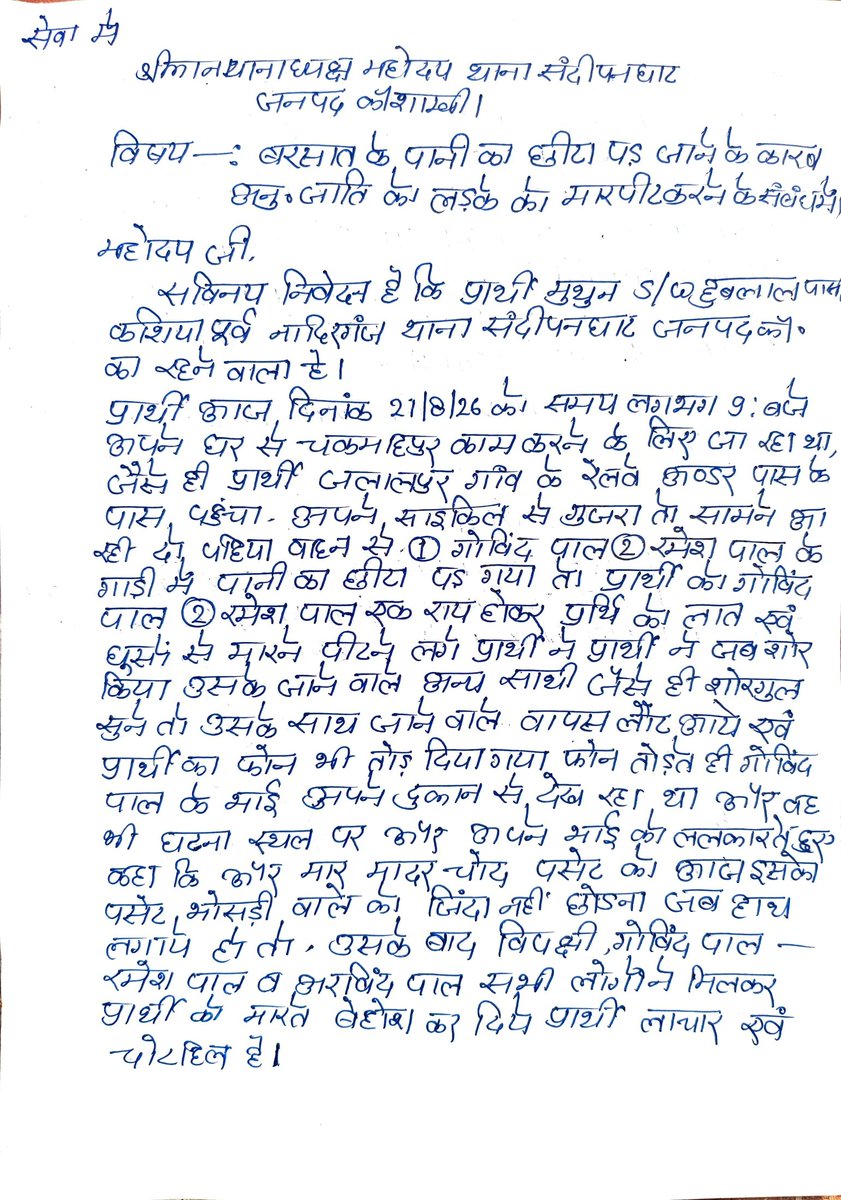 सेवा में
श्रीमान थानाध्यक्ष महोदय थाना संदीपनघाट
जनपद कौशाम्बी।
विषय —: बरसात के पानी का छीटा पड़ जाने के कारब
अनु॰ जाति के लड़के को मारपीट करने के संबंध में।
महोदय जी,
सविनय निवेदन है कि प्रार्थी मुथुन S/O हुबलाल पास
कशिया पूर्व नादिरगंज थाना संदीपनघाट जनपद कौ॰
का रहने वाला है।
प्रार्थी आज दिनांक 21/8/26 को समय लगभग 9: बजे
अपने घर से चकमाहपुर काम करने के लिए जा रहा था,
जैसे ही प्रार्थी जलालपुर गांव के रेलवे अण्डर पास के
पास पहुंचा. अपने साइकिल से गुजरा तो सामने आ
रही दो पहिया वाहन से ① गोविंद पाल ② रमेश पाल के
गाड़ी में पानी का छीटा पड़ गया तो प्रार्थी को गोविंद
पाल ② रमेश पाल एक राय होकर प्रर्थि को लात एवं
घूसों से मारने पीटने लगे प्रार्थी ने प्रार्थी ने जब शोर
किया उसके जाने वाले अन्य साथी जैसे ही शोरगुल
सुने तो उसके साथ जाने वाले वापस लौट आये एवं
प्रार्थी का फोन भी तोड़ दिया गया फोन तोड़ते ही गोविंद
पाल के भाई अपने दुकान से देख रहा था और वह
भी घटना स्थल पर और अपने भाई को ललकारते हुए
कहा कि और मार मादर चोद पसेट को आज इसको
पसेट भोसड़ी वाले को जिंदा नहीं छोडना जब हाथ
लगाये हो तो. उसके बाद विपक्षी गोविंद पाल —
रमेश पाल व अरविंद पाल सभी लोगोंने मिलकर
प्रार्थी को मारते बेहोश कर दिये प्रार्थी लाचार एवं
चोटहिल है।